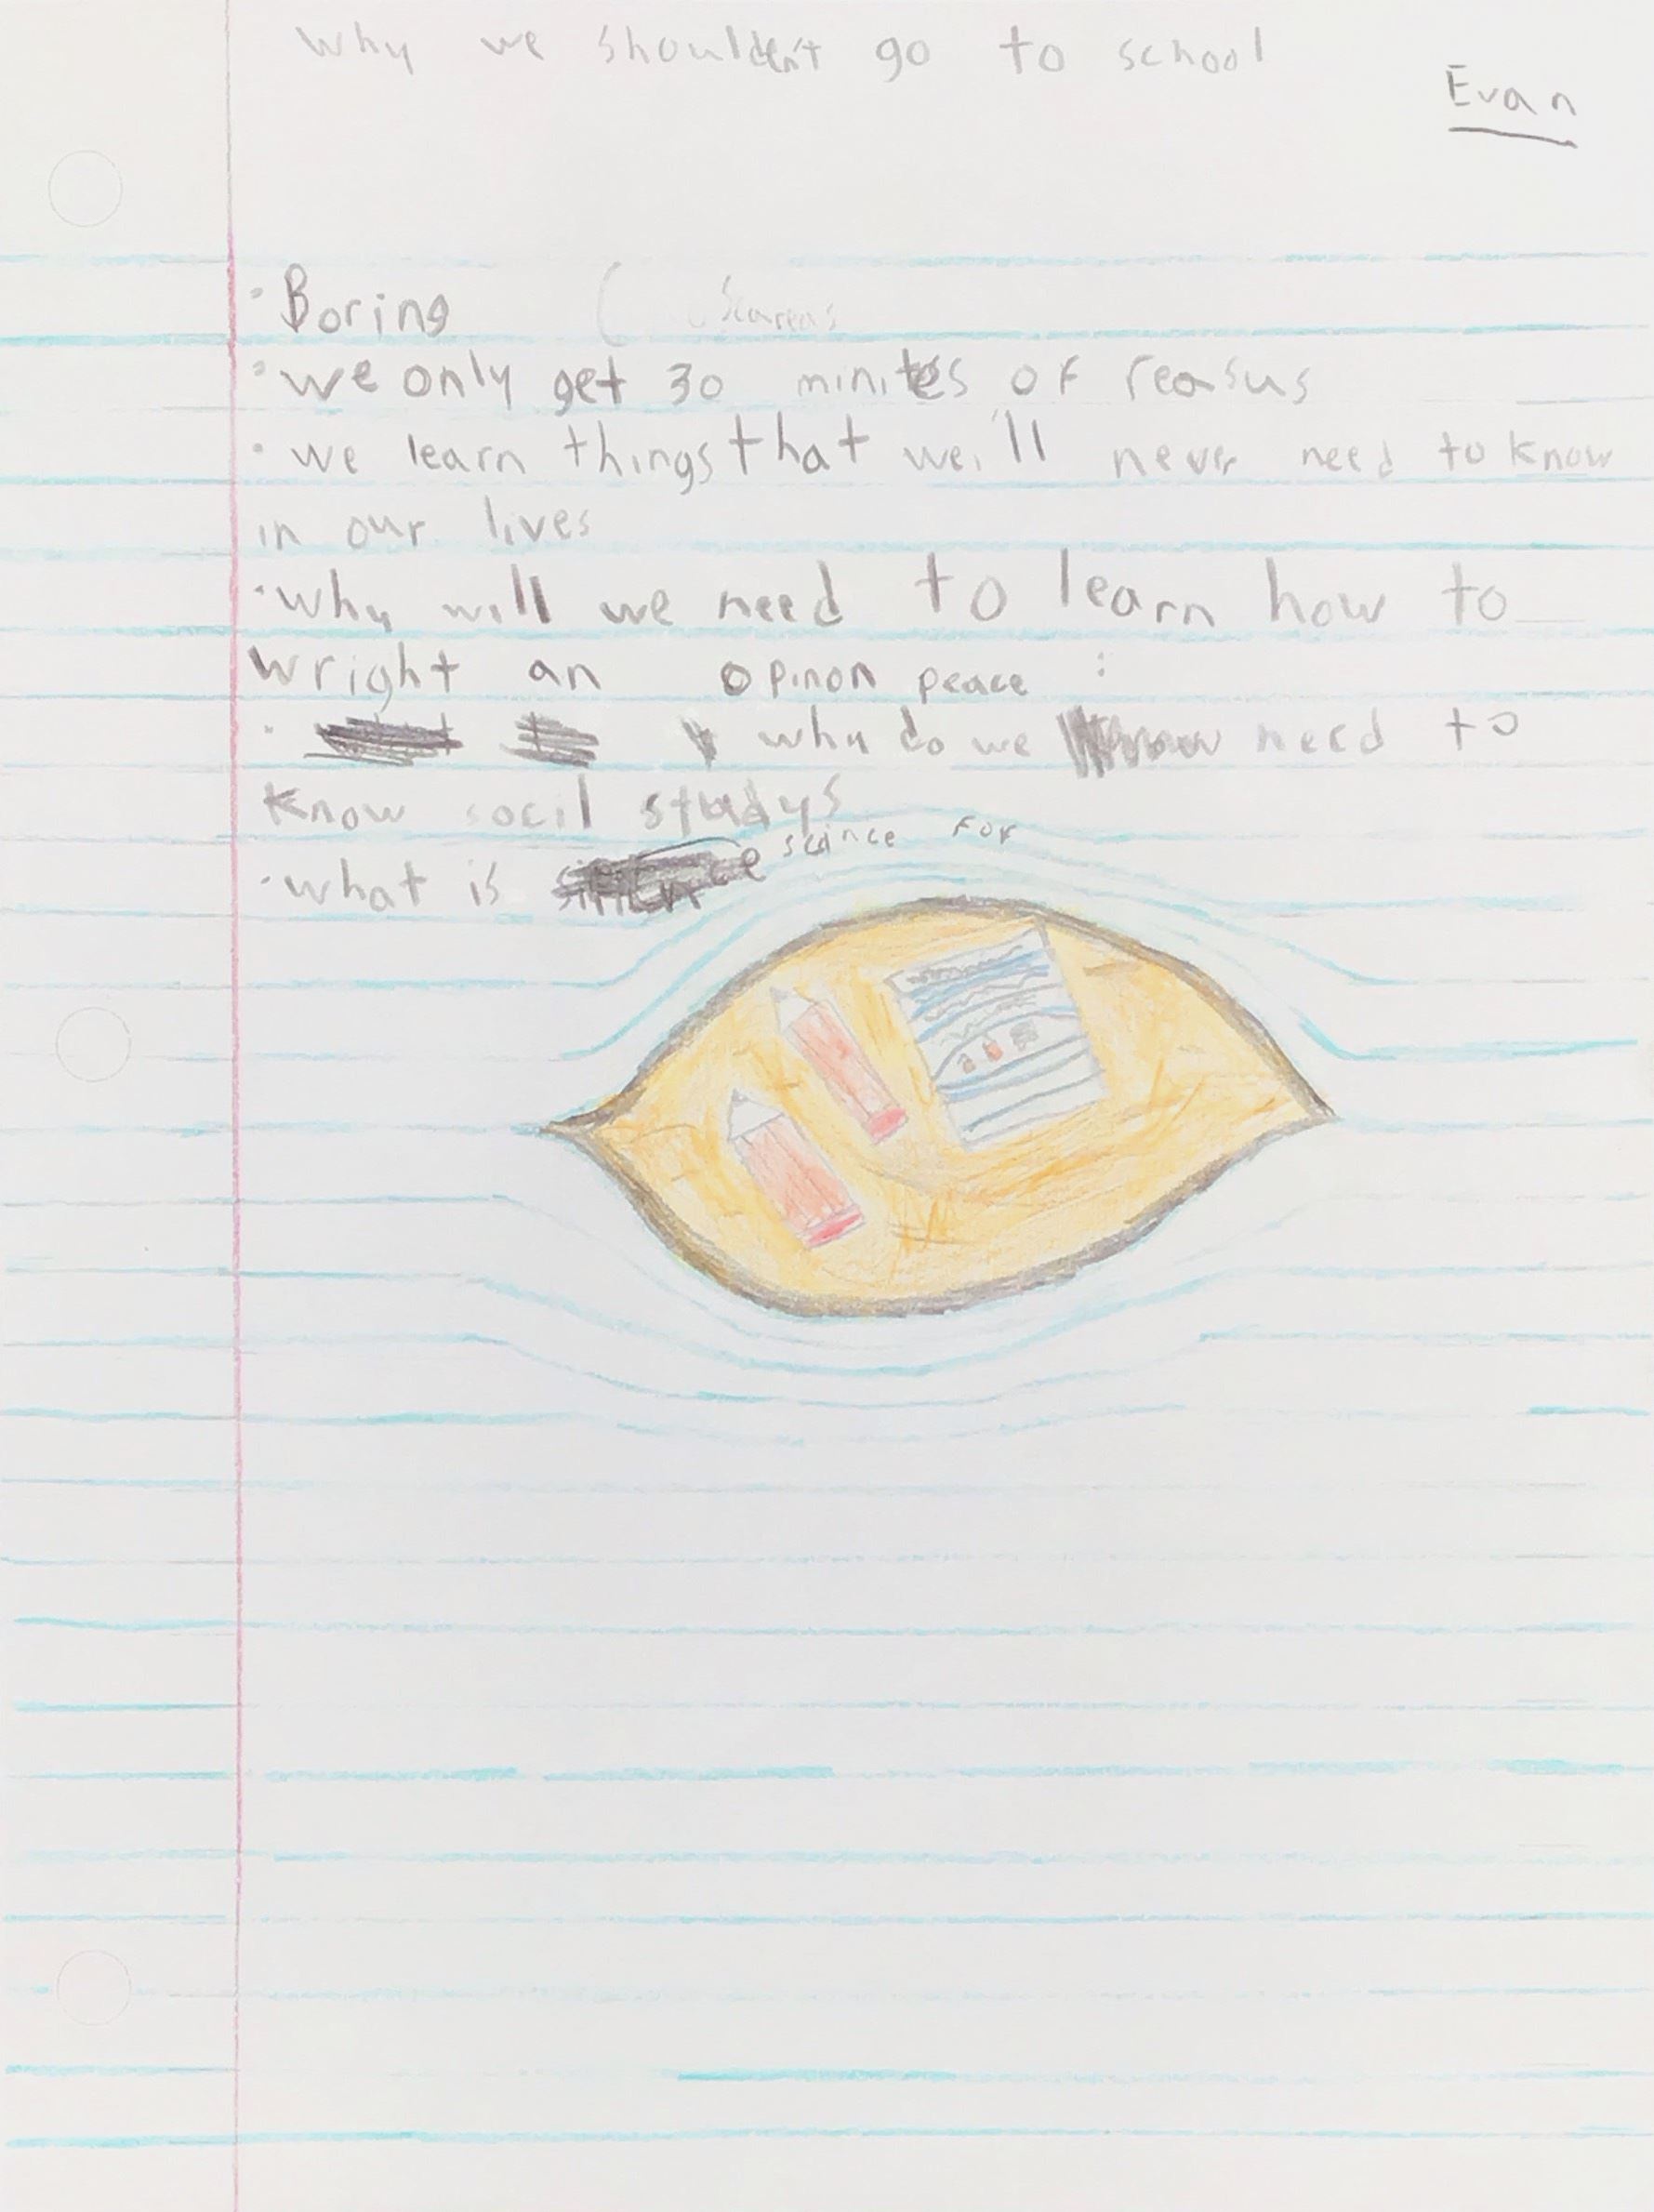 Why we shouldn't go to school
Evan
· Boring
· we only get 30 minites of reasus
· we learn things that we'll never need to know
in our lives
· why will we need to learn how to
wright an opinon peace :
· why do we need to
Know socil studys
· what is scince for